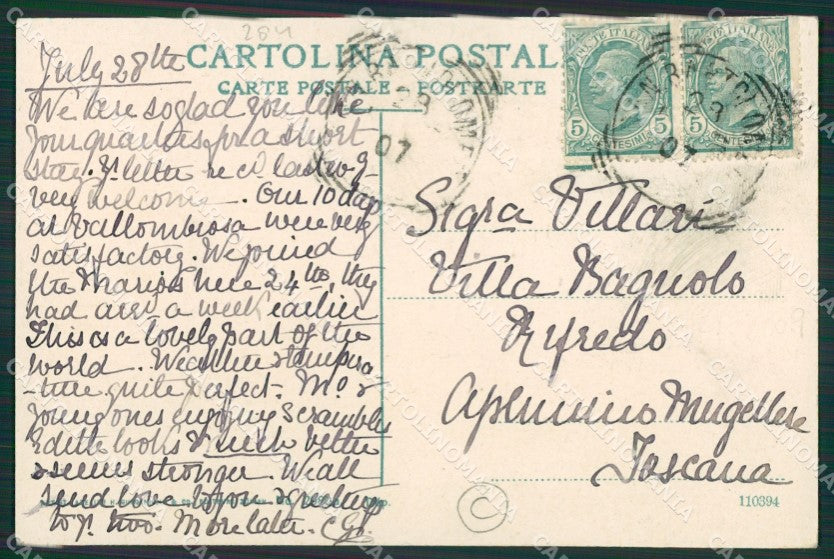 284
CARTOLINA POSTALE
CARTE POSTALE - POSTKARTE
July 28th
We are so glad you like
your quarters for a short
stay. Yr letter recd last evg
very welcome. Our 10 days
at Vallombrosa were very
satisfactory. We joined
the here 24th, they
had arrd a week earlier
This is a lovely part of the
world. Weather & tempera
-ture quite perfect. Mo. &
young ones enjoy scrambles
Edith looks much better
& seems stronger. We all
send love to you &
to yr two. More later.
POSTE ITALIANE
5 CENTESIMI 5
POSTE ITALIANE
5 CENTESIMI 5
07
Sigra Villari
Villa Bagnolo
Rifredo
Apennino Mugellese
Toscana
110394
C
CARTOLINOMANIA